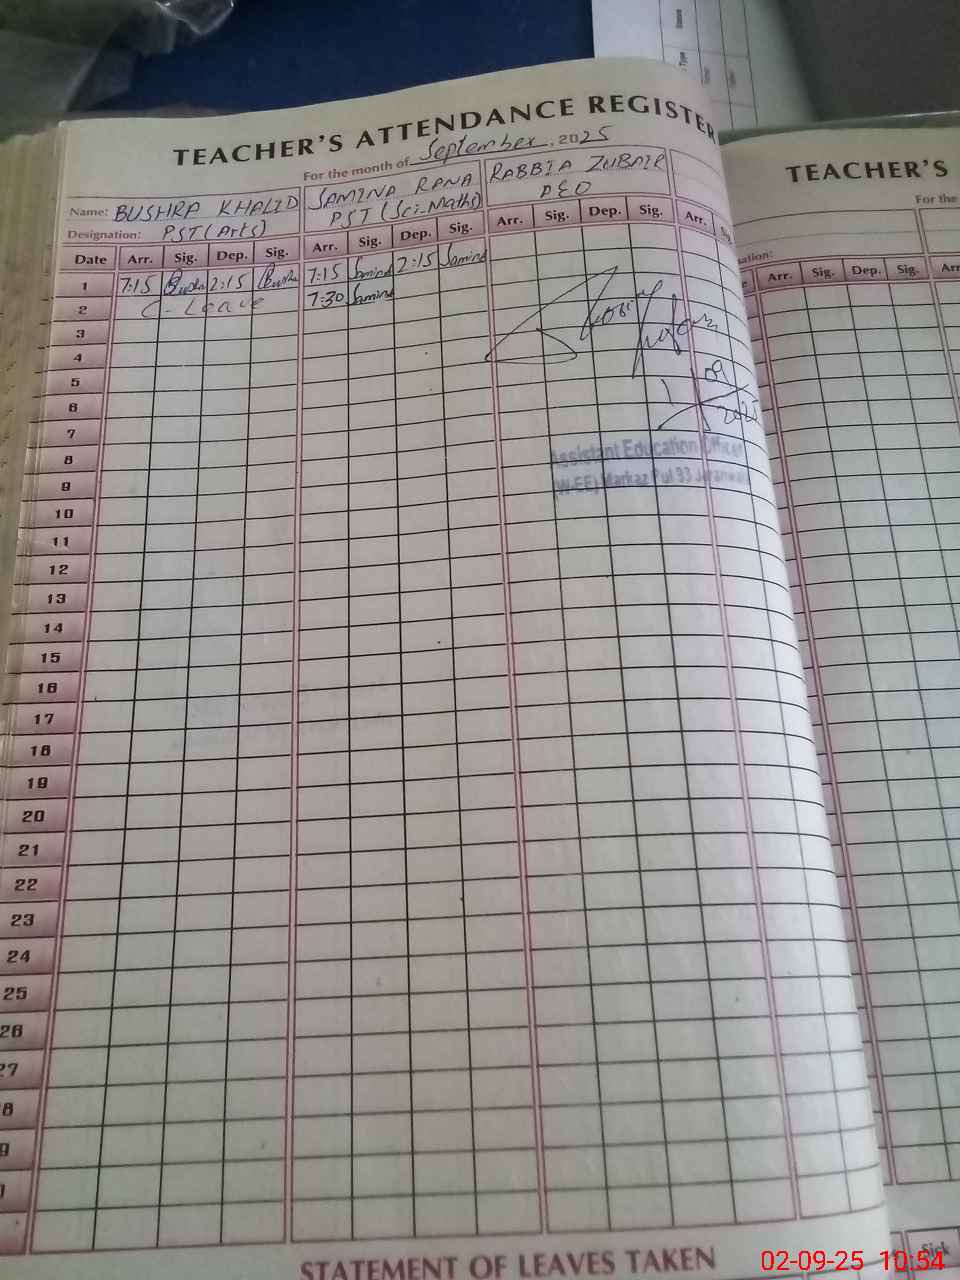 TEACHER'S ATTENDANCE REGISTER
For the month of September, 2025
Name: BUSHRA KHALID SAMINA RANA RABBIA ZUBAIR
Designation: PST (Arts) PST (Sci-Maths) AEO
Date Arr. Sig. Dep. Sig. Arr. Sig. Dep. Sig. Arr. Sig. Dep. Sig. Arr.
1 7:15 2:15 7:15 Samina 2:15 Samina
2 C-Leave 7:30 Samina
3
4
5
6
7
8
9
10
11
12
13
14
15
16
17
18
19
20
21
22
23
24
25
26
27
Assistant Education Officer
(W-EE) Markaz Pul 93 Jaranwala
STATEMENT OF LEAVES TAKEN
TEACHER'S
For the
Arr. Sig. Dep. Sig.
Sick
02-09-25 10:54